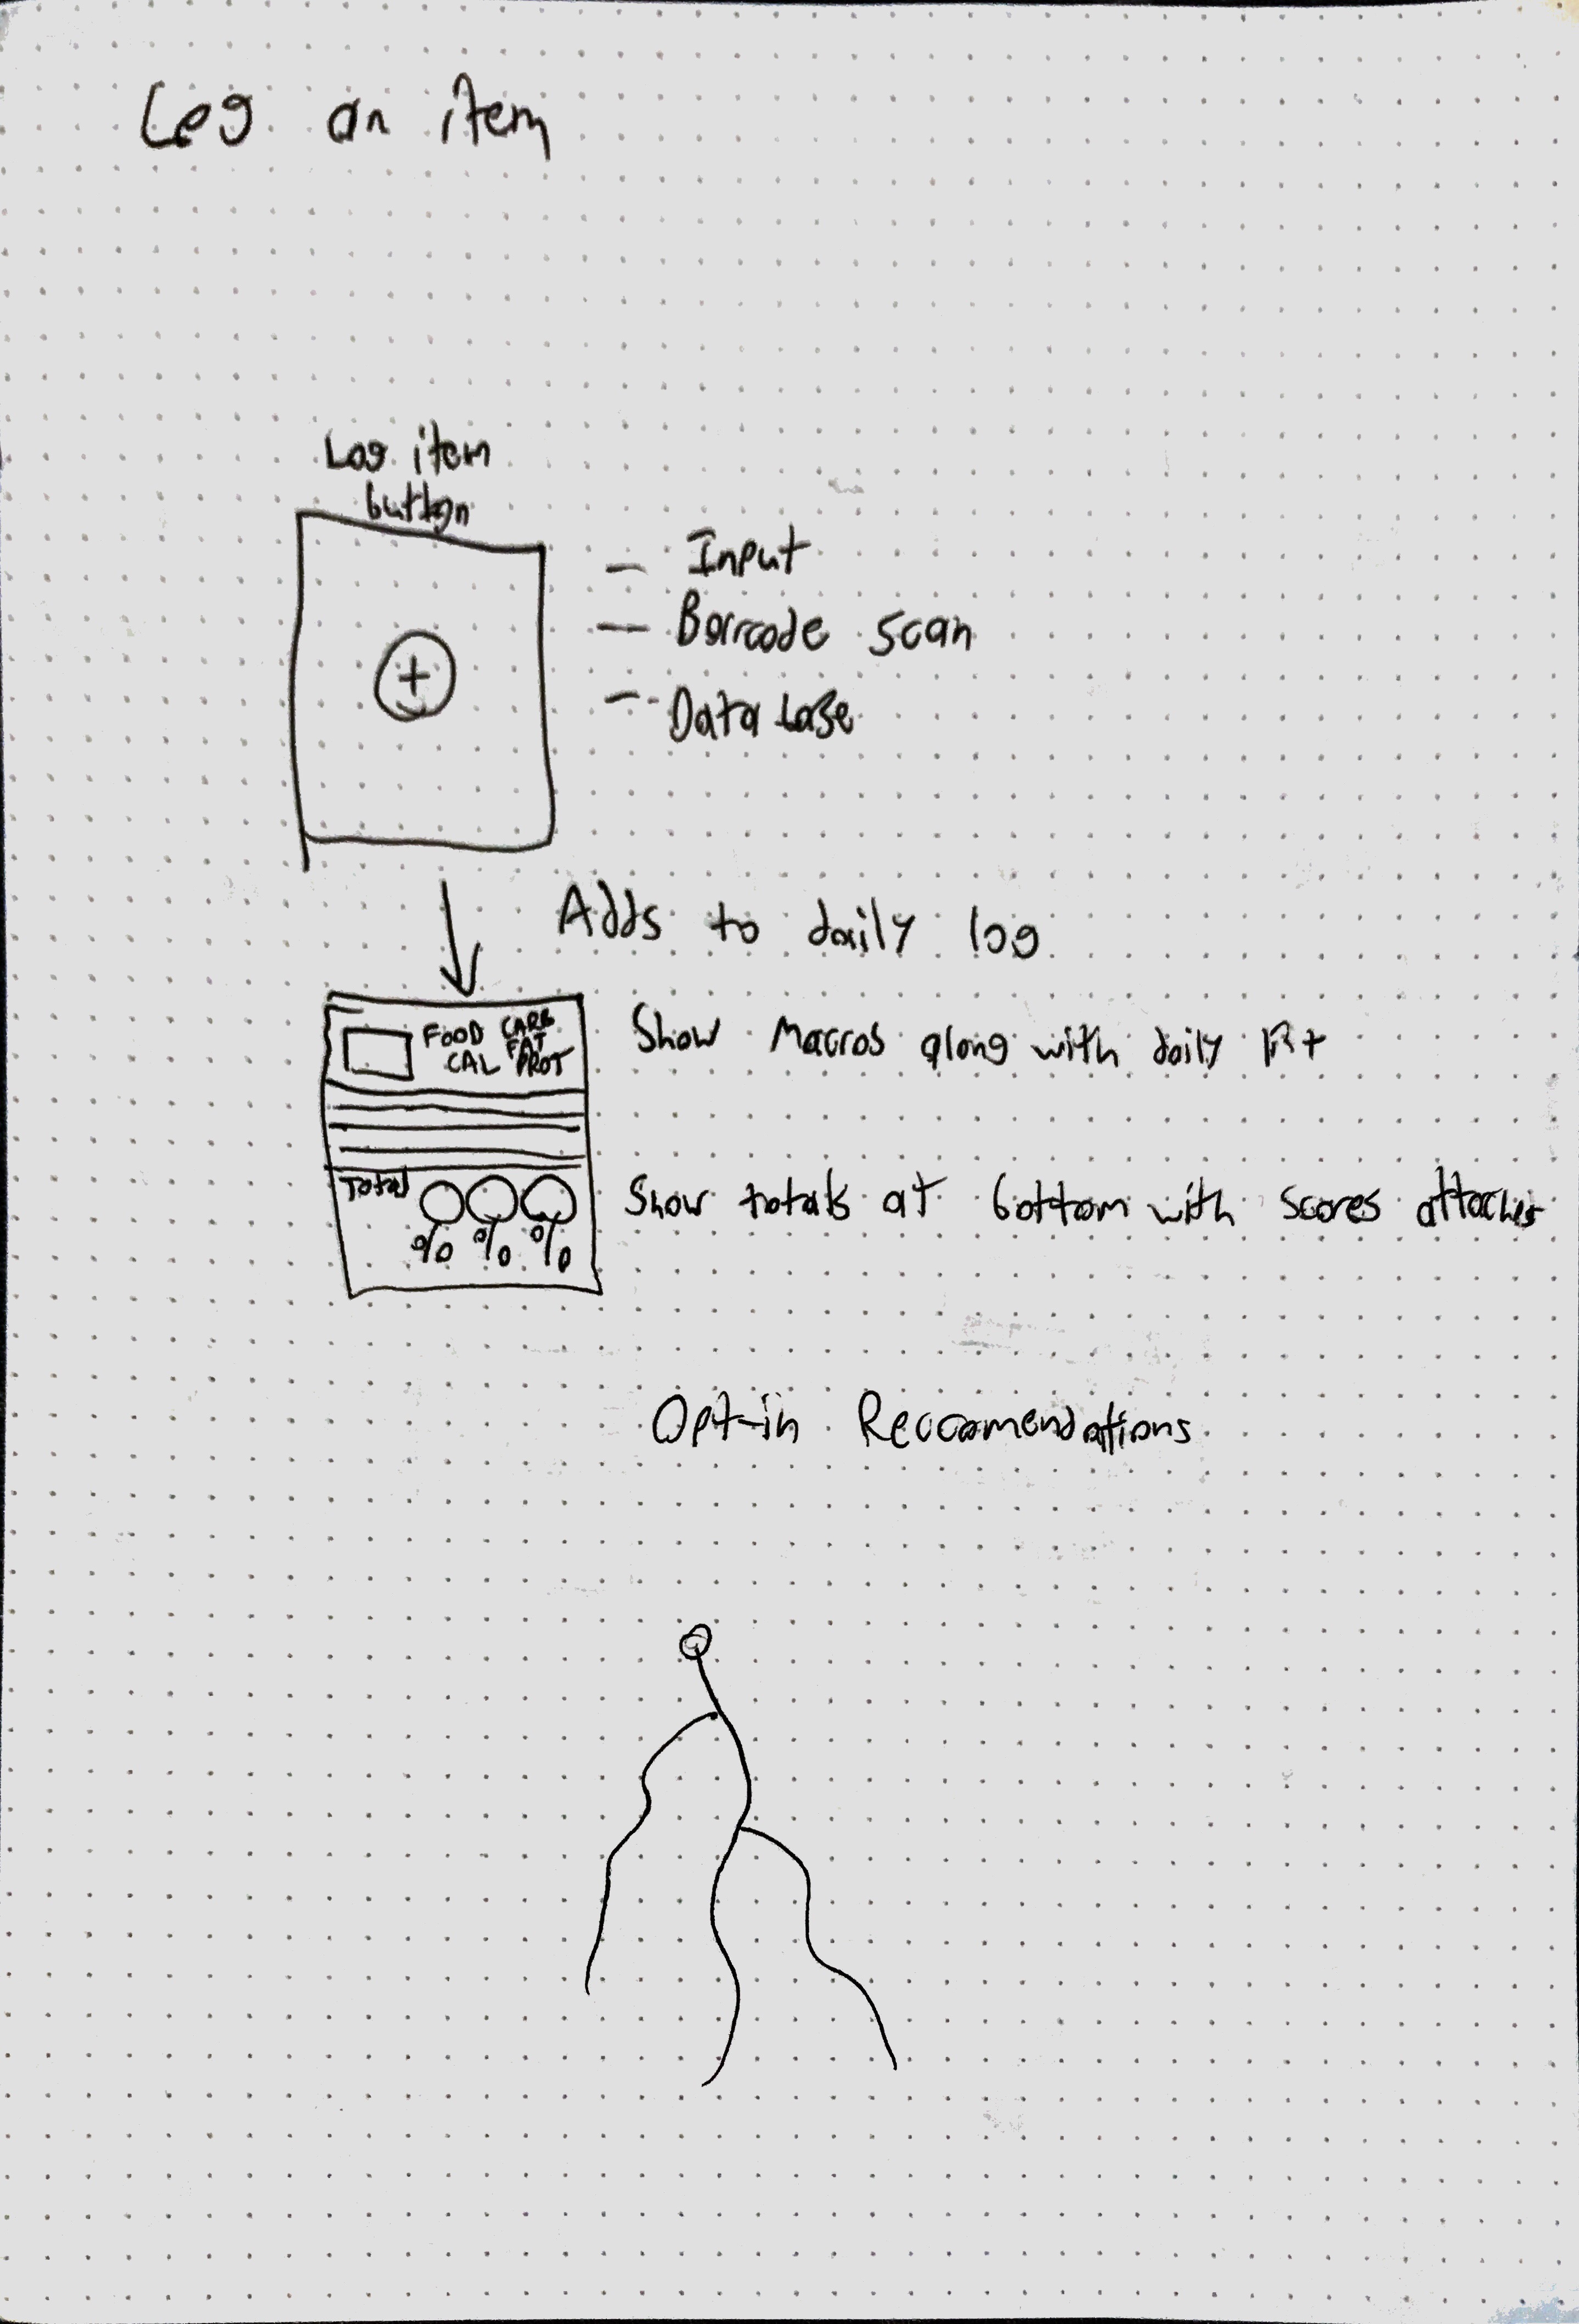 Log an item
Log item
button
+
- Input
- Barcode scan
- Database
Adds to daily log
FOOD CARB
FAT
CAL PROT
Show Macros along with daily list
Total
% % %
Show totals at bottom with scores attached
Opt-in Reccomendations